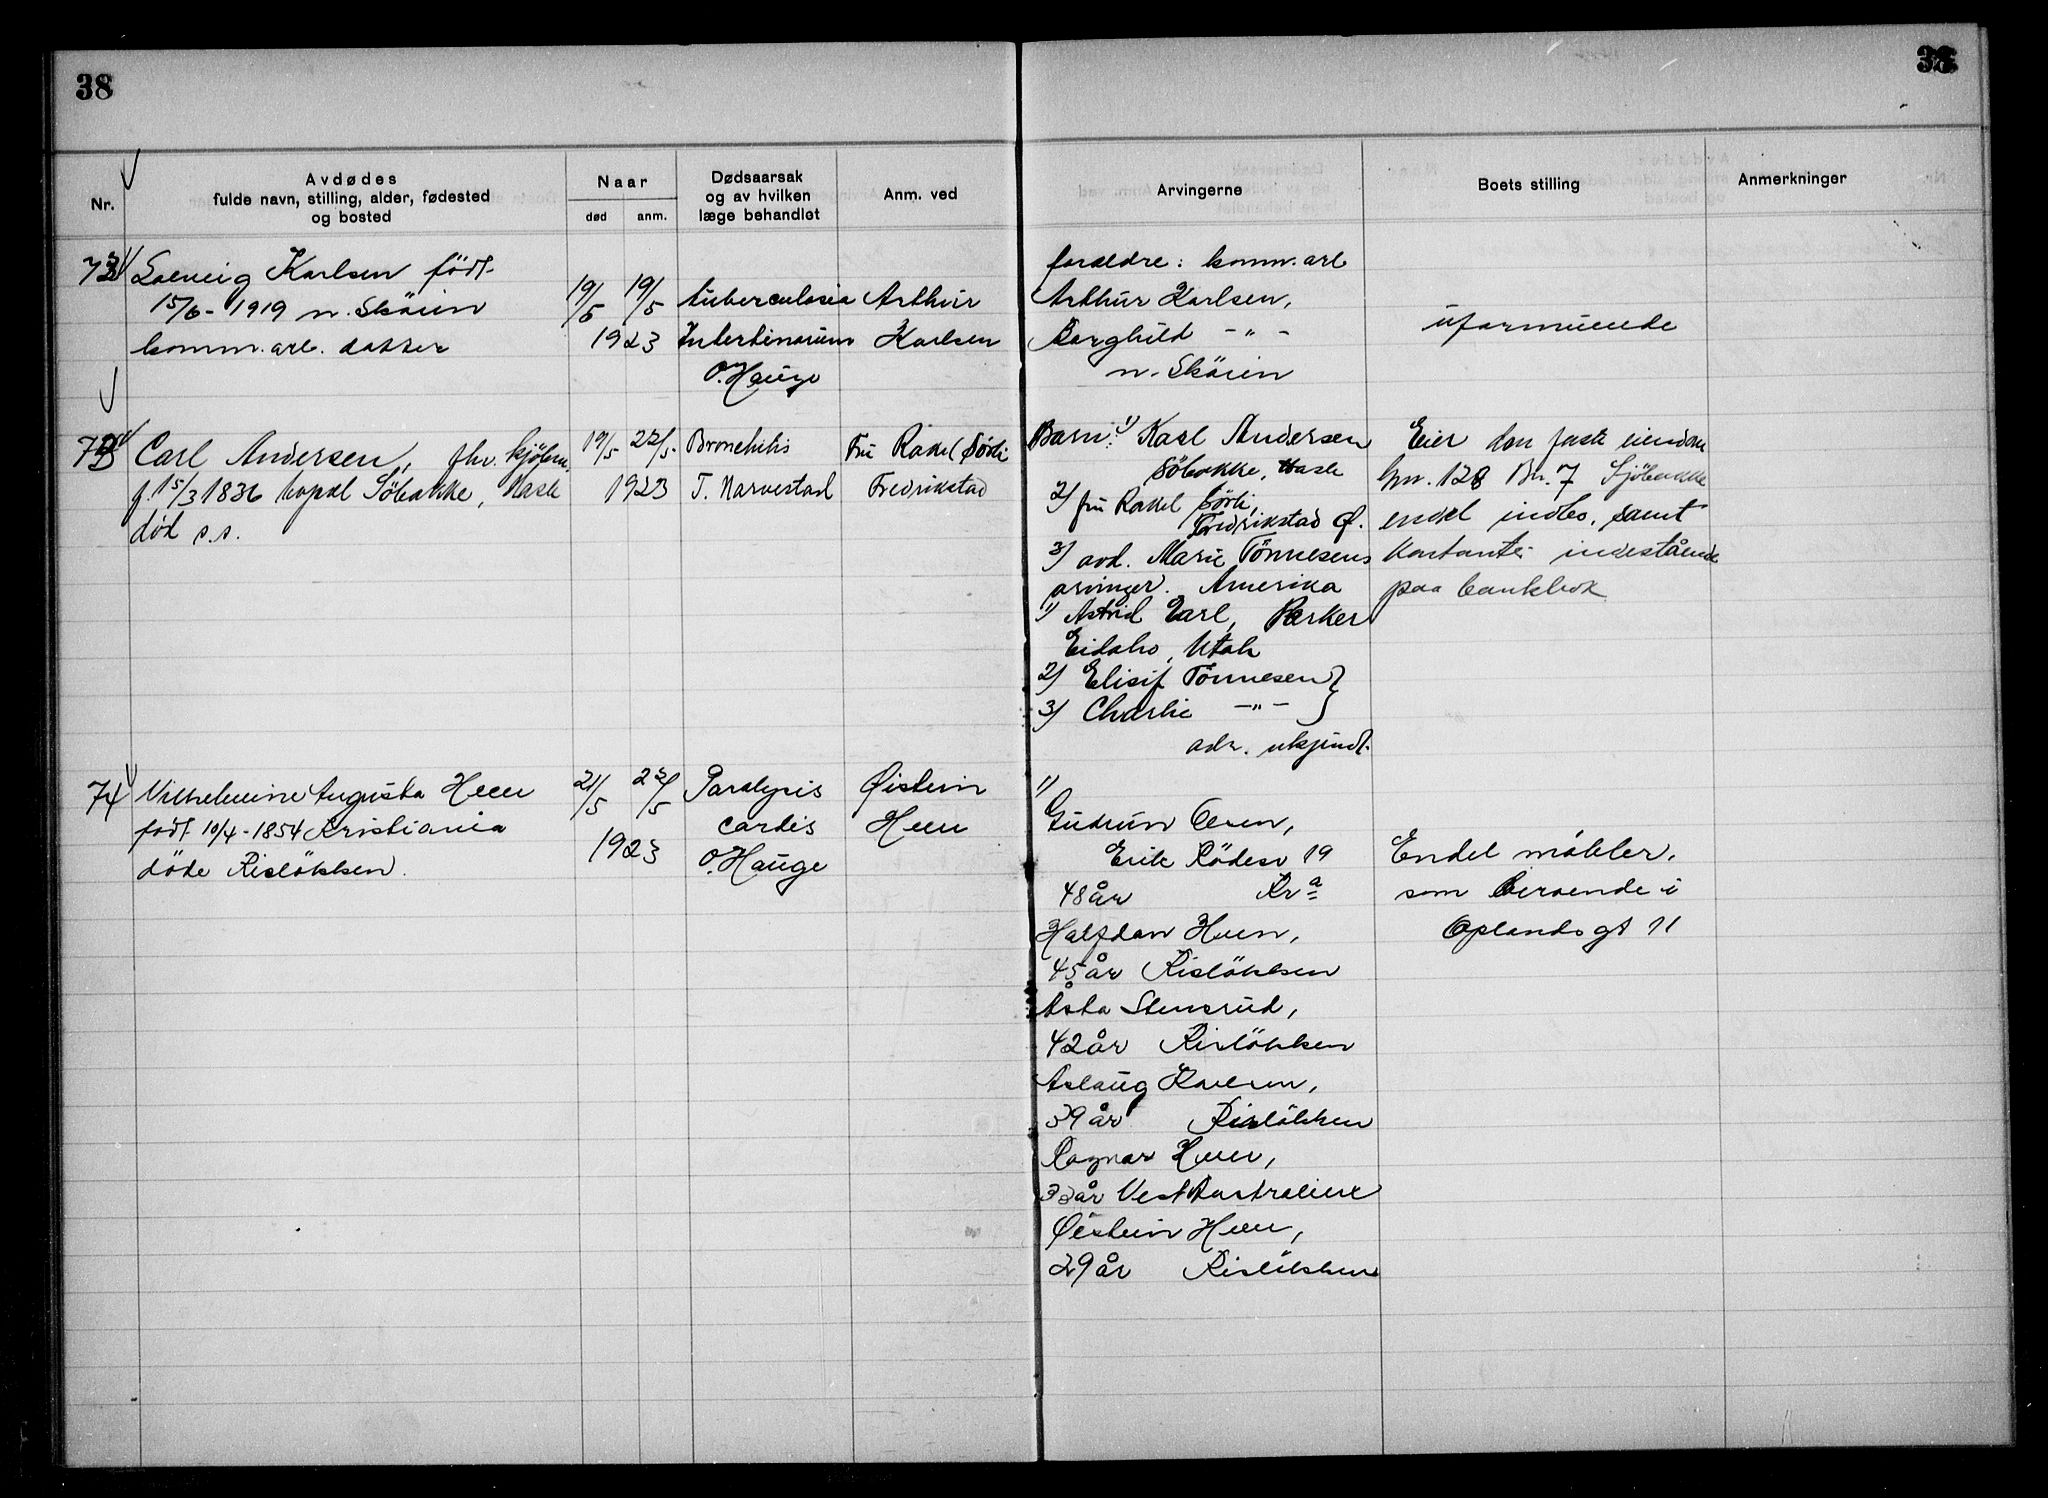 38
38
Nr.
Avdødes
fulde navn, stilling, alder, fødested
og bosted
Naar
død
anm.
Dødsaarsak
og av hvilken
læge behandlet
Anm. ved
Arvingerne
Boets stilling
Anmerkninger
Solveig Karlsen födt
15/6 - 1919 n. Sköien
komm. arb. datter
19/5 19/5
1923
tuberculosis
Intestinorum
O. Hauge
Arthur
Karlsen
foreldre: komm. arb
Arthur Karlsen,
Borghild -"-
n. Sköien
uformuende
Carl Andersen, fhv. kjöbm.
f. 15/3 1836 bopæl Söbakke, Hasle
död s.s.
19/5 22/5
1923
Bronchitis
T. Narvestad
Fru Rakel Sörli
Fredrikstad
Barn: 1) Karl Andersen
Söbakke, Hasle
2) fru Rakel Sörli,
Fredrikstad Ø.
3) avd. Marie Tönnesens
arvinger. Amerika
1) Astrid Earl, Parker
Eidaho, Utah
2) Elisif Tönnesen }
3) Charlie -"- }
adr. ukjendt.
Eier den faste eiendom
Gn. 128 Bn. 7 Sjöbakke
endel indbo, samt
Kontanter indestående
paa bankbok
74
Vilhelmine Augusta Heen
födt 10/4 - 1854 Kristiania
döde Rislökken.
21/5 23/5
1923
Paralysis
cordis
O. Hauge
Øistein
Heen
1)
Gudrun Olsen,
Erik Rödesv 19
48 år Kra
Halfdan Heen,
45 år Rislökken
Åsta Stensrud,
42 år Rislökken
Aslaug Karlsen,
39 år Rislökken
Ragnar Heen,
33 år Vest Australien
Øistein Heen,
29 år Rislökken
Endel möbler,
som beroende i
Oplandsgt 11